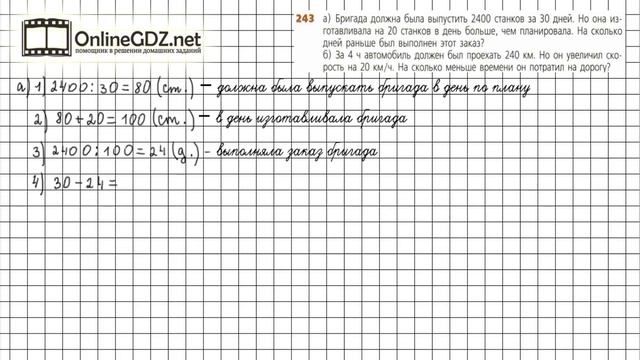 OnlineGDZ.net
помощник в решении домашних заданий
243 а) Бригада должна была выпустить 2400 станков за 30 дней. Но она из-
готавливала на 20 станков в день больше, чем планировала. На сколько
дней раньше был выполнен этот заказ?
б) За 4 ч автомобиль должен был проехать 240 км. Но он увеличил ско-
рость на 20 км/ч. На сколько меньше времени он потратил на дорогу?
а) 1) 2400:30=80 (ст.) — должна была выпускать бригада в день по плану
2) 80+20=100 (ст.) — в день изготавливала бригада
3) 2400:100=24 (д.) - выполняла заказ бригада
4) 30-24=